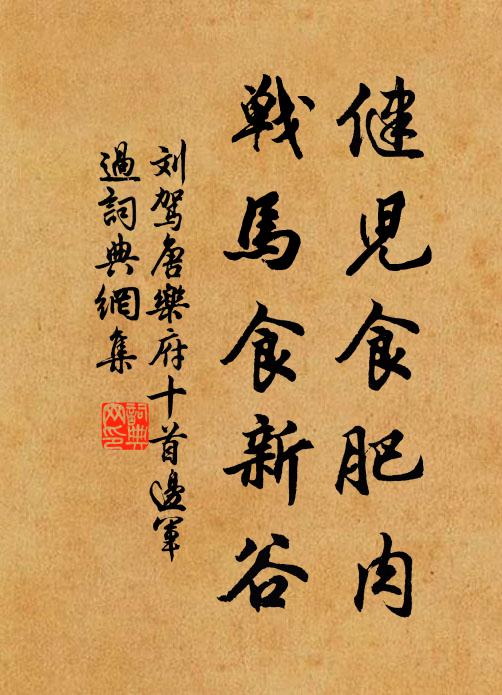 健児食肥肉
戦馬食新谷
刘驾唐樂府十首邊軍
過詞典網集
詞典
网印